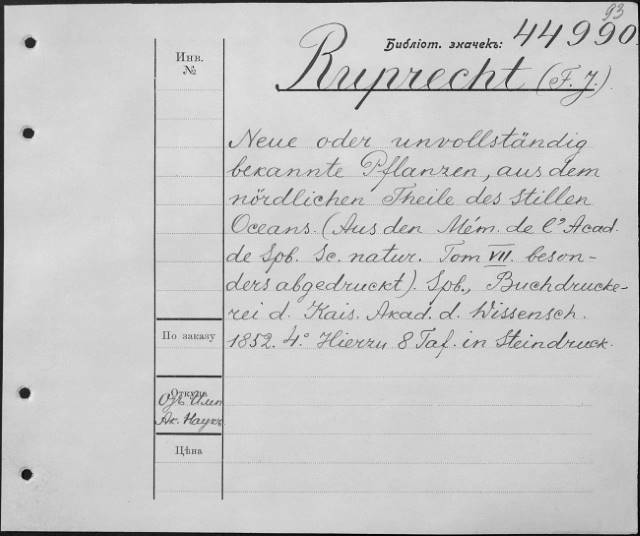 93
Библіот. значекъ: 44990
Инв.
№
Ruprecht (F. J.)
Neue oder unvollständig
bekannte Pflanzen, aus dem
nördlichen Theile des stillen
Oceans. (Aus den Mém. de l'Acad.
de Spb. Sc. natur. Tom VII. beson-
ders abgedruckt). Spb., Buchdrucke-
rei d. Kais. Akad. d. Wissensch.
1852. 4° Hierzu 8 Taf. in Steindruck.
По заказу
Откуда
Ак. Наукъ
Цѣна